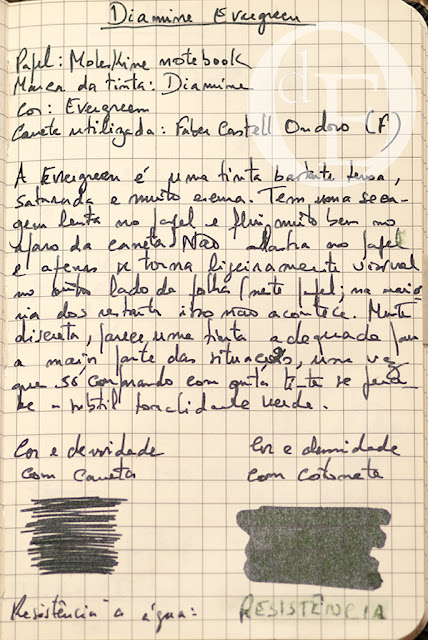 Diamine Evergreen
Papel: Moleskine notebook
Marca da tinta: Diamine
Cor: Evergreen
Caneta utilizada: Faber Castell Ondoro (F)
A Evergreen é uma tinta bastante densa,
saturada e muito escura. Tem uma seca-
gem lenta no papel e flui muito bem no
aparo da caneta. Não alastra no papel
e apenas se torna ligeiramente visível
no outro lado da folha (neste papel; na maio-
ria dos restantes isso não acontece. Muito
discreta, parece uma tinta adequada para
a maior parte das situações, uma vez
que só comparando com outra tinta se perce-
be a subtil tonalidade verde.
Cor e densidade
com caneta
Cor e densidade
com cotonete
Resistência à água:
RESISTÊNCIA